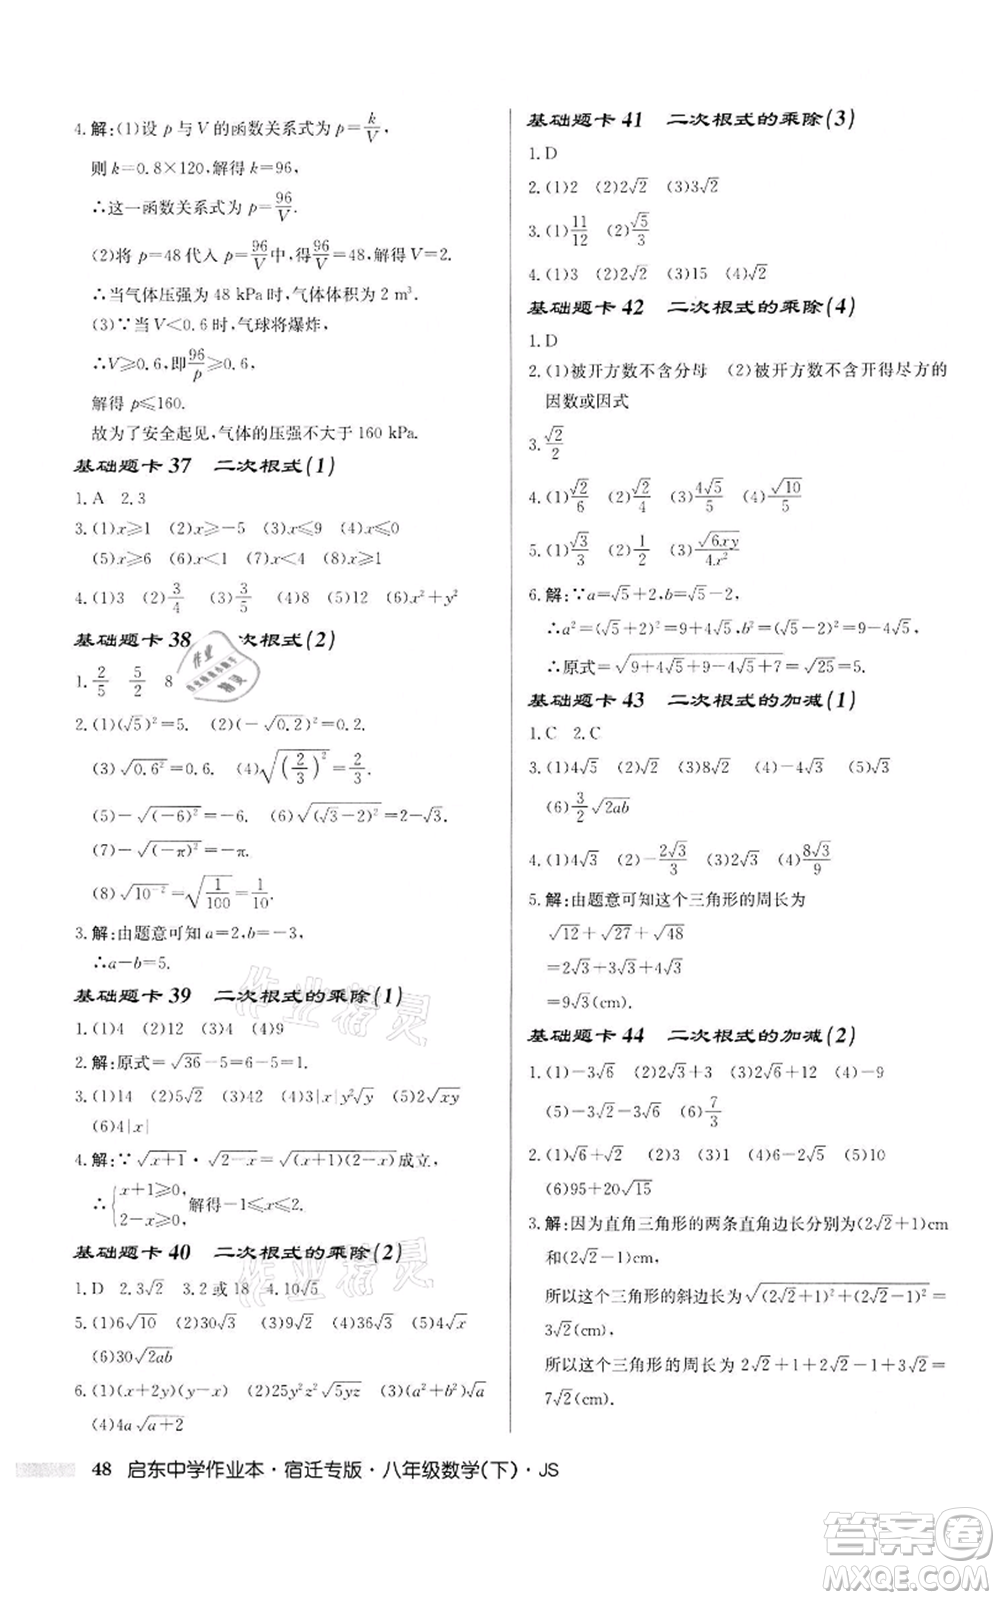 4.解:(1)设 p 与 V 的函数关系式为 p=k/V,
则 k=0.8×120,解得 k=96,
∴这一函数关系式为 p=96/V.
(2)将 p=48 代入 p=96/V中,得96/V=48,解得 V=2.
∴当气体压强为 48 kPa 时,气体体积为 2 m³.
(3)∵当 V<0.6 时,气球将爆炸,
∴V≥0.6,即96/p≥0.6,
解得 p≤160.
故为了安全起见,气体的压强不大于 160 kPa.
基础题卡 37 二次根式(1)
1.A 2.3
3.(1)x≥1 (2)x≥-5 (3)x≤9 (4)x≤0
(5)x≥6 (6)x<1 (7)x>-1 (8)x≤3
4.(1)3 (2)3/4 (3)3/5 (4)18 (5)12 (6)x²+y²
基础题卡 38 次根式(2)
1.2/5 5/2 8
2.(1)(√5)²=5. (2)(-√0.2)²=0.2.
(3)√0.6²=0.6. (4)√(2/3)²=2/3.
(5)-√(-6)²=-6. (6)√(√3-2)²=2-√3.
(7)-√(-π)²=-π.
(8)√10⁻²=√1/100=1/10.
3.解:由题意可知 a=2,b=-3,
∴a-b=5.
基础题卡 39 二次根式的乘除(1)
1.(1)4 (2)12 (3)9 (4)4
2.解:原式=√36-5=6-5=1.
3.(1)14 (2)5√2 (3)42 (4)3|x|y²√x (5)2√xy
(6)4|x|
4.解:∵√x+1·√2-x=√(x+1)(2-x)成立,
∴{x+1≥0, 2-x≥0,解得-1≤x≤2.
基础题卡 40 二次根式的乘除(2)
1.D 2.3√2 3.2 或 18 4.10√5
5.(1)6√10 (2)30√3 (3)60 (4)3 (5)2√3
(6)30√2ab
6.(1)(x+2y)(y-x) (2)2xyz²√5yz (3)(a²+b²)√a
(4)4a√a+2
基础题卡 41 二次根式的乘除(3)
1.D
2.(1)2 (2)2√2 (3)3√2
3.(1)11/12 (2)√5/3
4.(1)3 (2)2√2 (3)15 (4)√2
基础题卡 42 二次根式的乘除(4)
1.D
2.(1)被开方数不含分母 (2)被开方数不含开得尽方的
因数或因式
3.√2/2
4.(1)√2/6 (2)√2/4 (3)4√5/5 (4)√10/5
5.(1)√3/3 (2)1/2 (3)√6xy/4x²
6.解:∵a=√5+2,b=√5-2,
∴a²=(√5+2)²=9+4√5,b²=(√5-2)²=9-4√5,
∴原式=√9+4√5+9-4√5+7=√25=5.
基础题卡 43 二次根式的加减(1)
1.C 2.C
3.(1)4√5 (2)√3 (3)8√3 (4)-4√2 (5)√3
(6)3/2√2ab
4.(1)4√3 (2)-2√3/3 (3)2√3 (4)8√3/9
5.解:由题意可知这个三角形的周长为
√12+√27+√48
=2√3+3√3+4√3
=9√3(cm).
基础题卡 44 二次根式的加减(2)
1.(1)-3√6 (2)2√3+3 (3)√2 (4)-9
(5)-3√2-3√6 (6)7/3
2.(1)√6+√2 (2)-1 (3)-1 (4)√2 (5)10
(6)95+20√15
3.解:因为直角三角形的两条直角边长分别为(2√2+1)cm
和(2√2-1)cm,
所以这个三角形的斜边长为√(2√2+1)²+(2√2-1)²=
3√2(cm),
所以这个三角形的周长为 2√2+1+2√2-1+3√2=
7√2(cm).
48 启东中学作业本·宿迁专版·八年级数学(下)·JS
作业精灵
作业精灵
答案卷
MXQE.COM